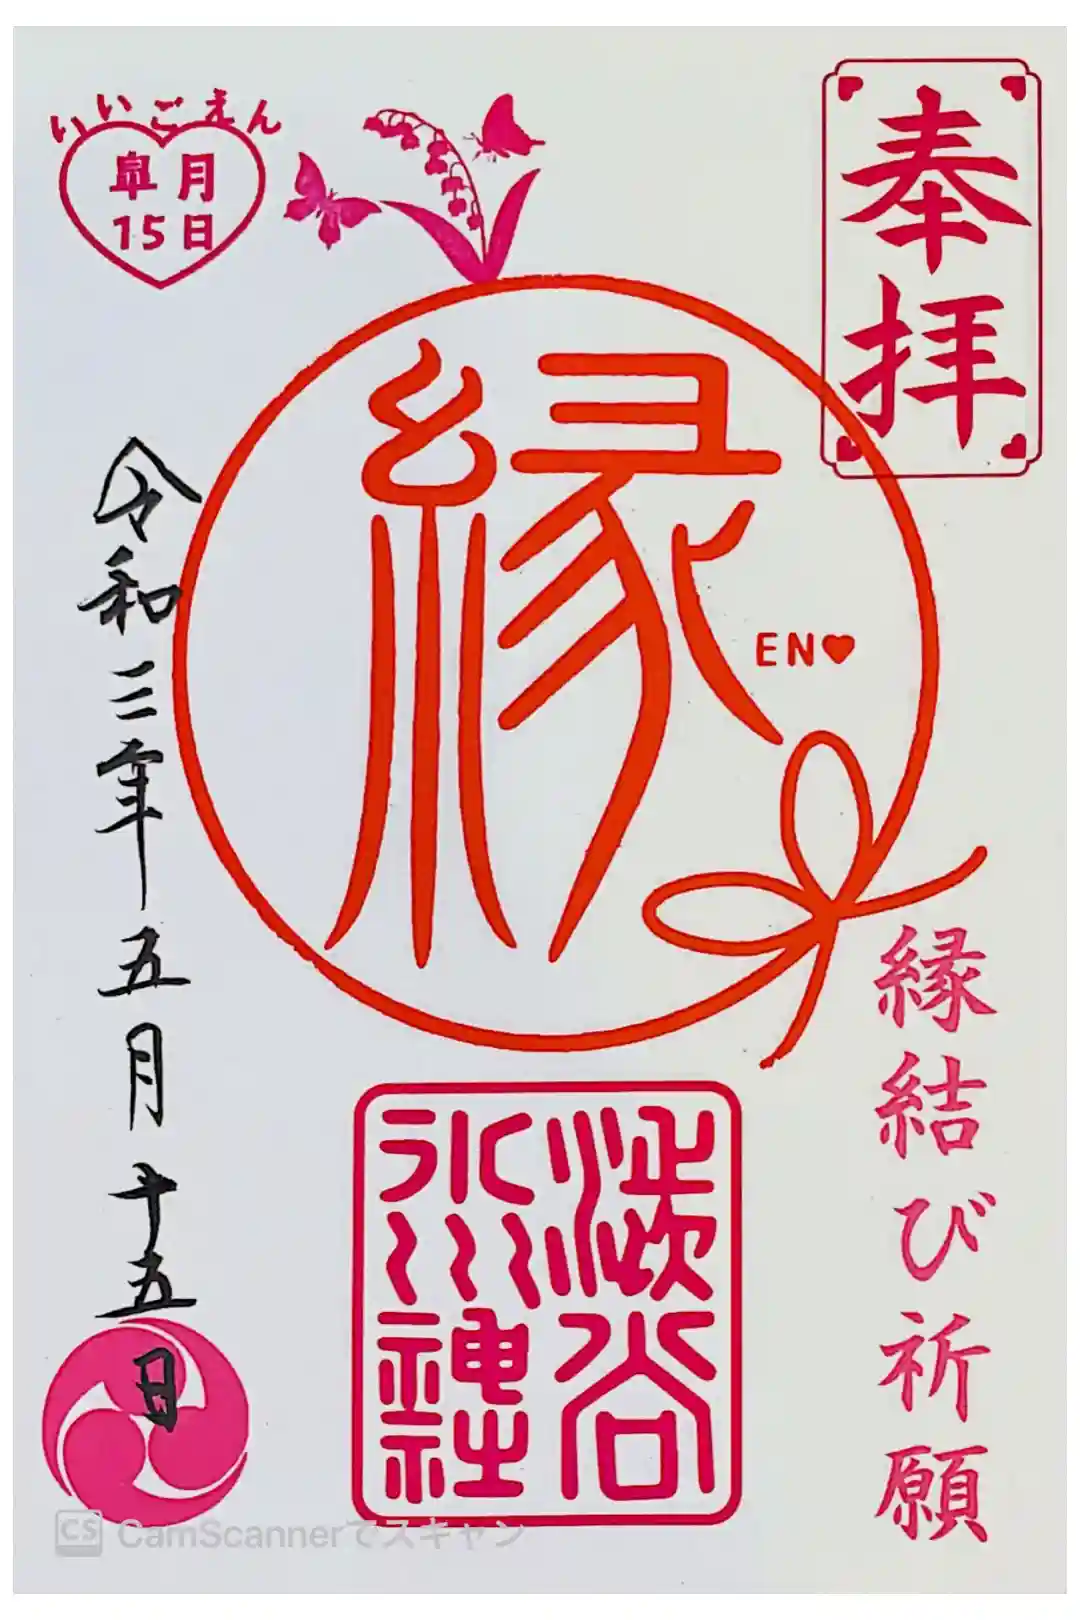 奉拝
縁結び祈願
縁
EN♥
渋谷
氷川神社
いいごえん
皐月
15日
令和三年五月十五日
CS CamScannerでスキャン